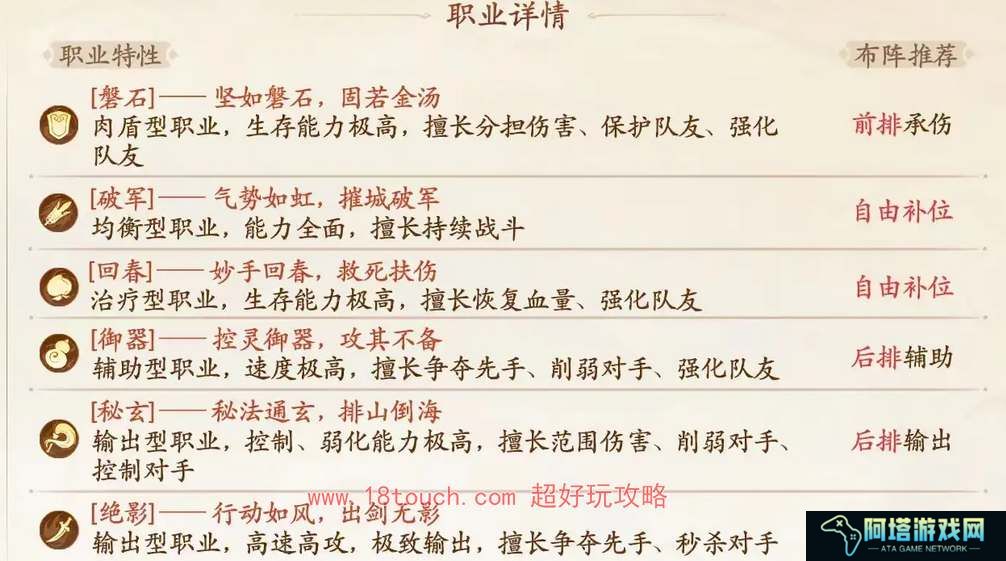 职业详情
职业特性
布阵推荐
[磐石]—— 坚如磐石，固若金汤
肉盾型职业，生存能力极高，擅长分担伤害、保护队友、强化
队友
前排承伤
[破军]—— 气势如虹，摧城破军
均衡型职业，能力全面，擅长持续战斗
自由补位
[回春]—— 妙手回春，救死扶伤
治疗型职业，生存能力极高，擅长恢复血量、强化队友
自由补位
[御器]—— 控灵御器，攻其不备
辅助型职业，速度极高，擅长争夺先手、削弱对手、强化队友
后排辅助
[秘玄]—— 秘法通玄，排山倒海
输出型职业，控制、弱化能力极高，擅长范围伤害、削弱对手、
控制对手
后排输出
www.18touch.com 超好玩攻略
[绝影]—— 行动如风，出剑无影
输出型职业，高速高攻，极致输出，擅长争夺先手、秒杀对手
阿塔游戏网
ATA GAME NETWORK